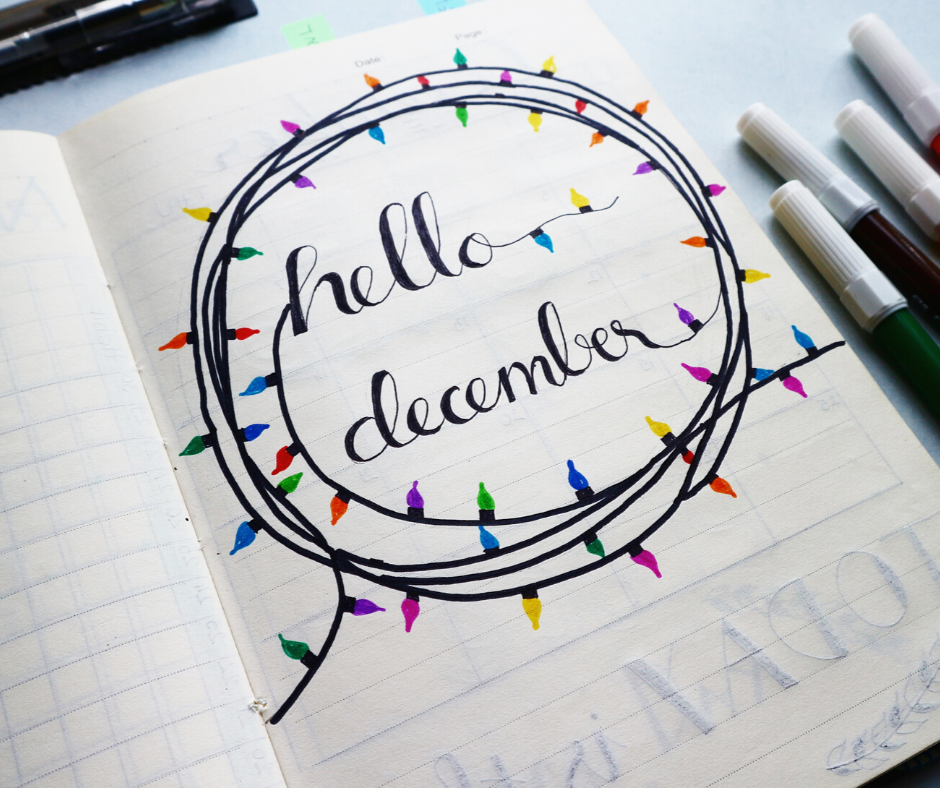 Date Page
hello
december